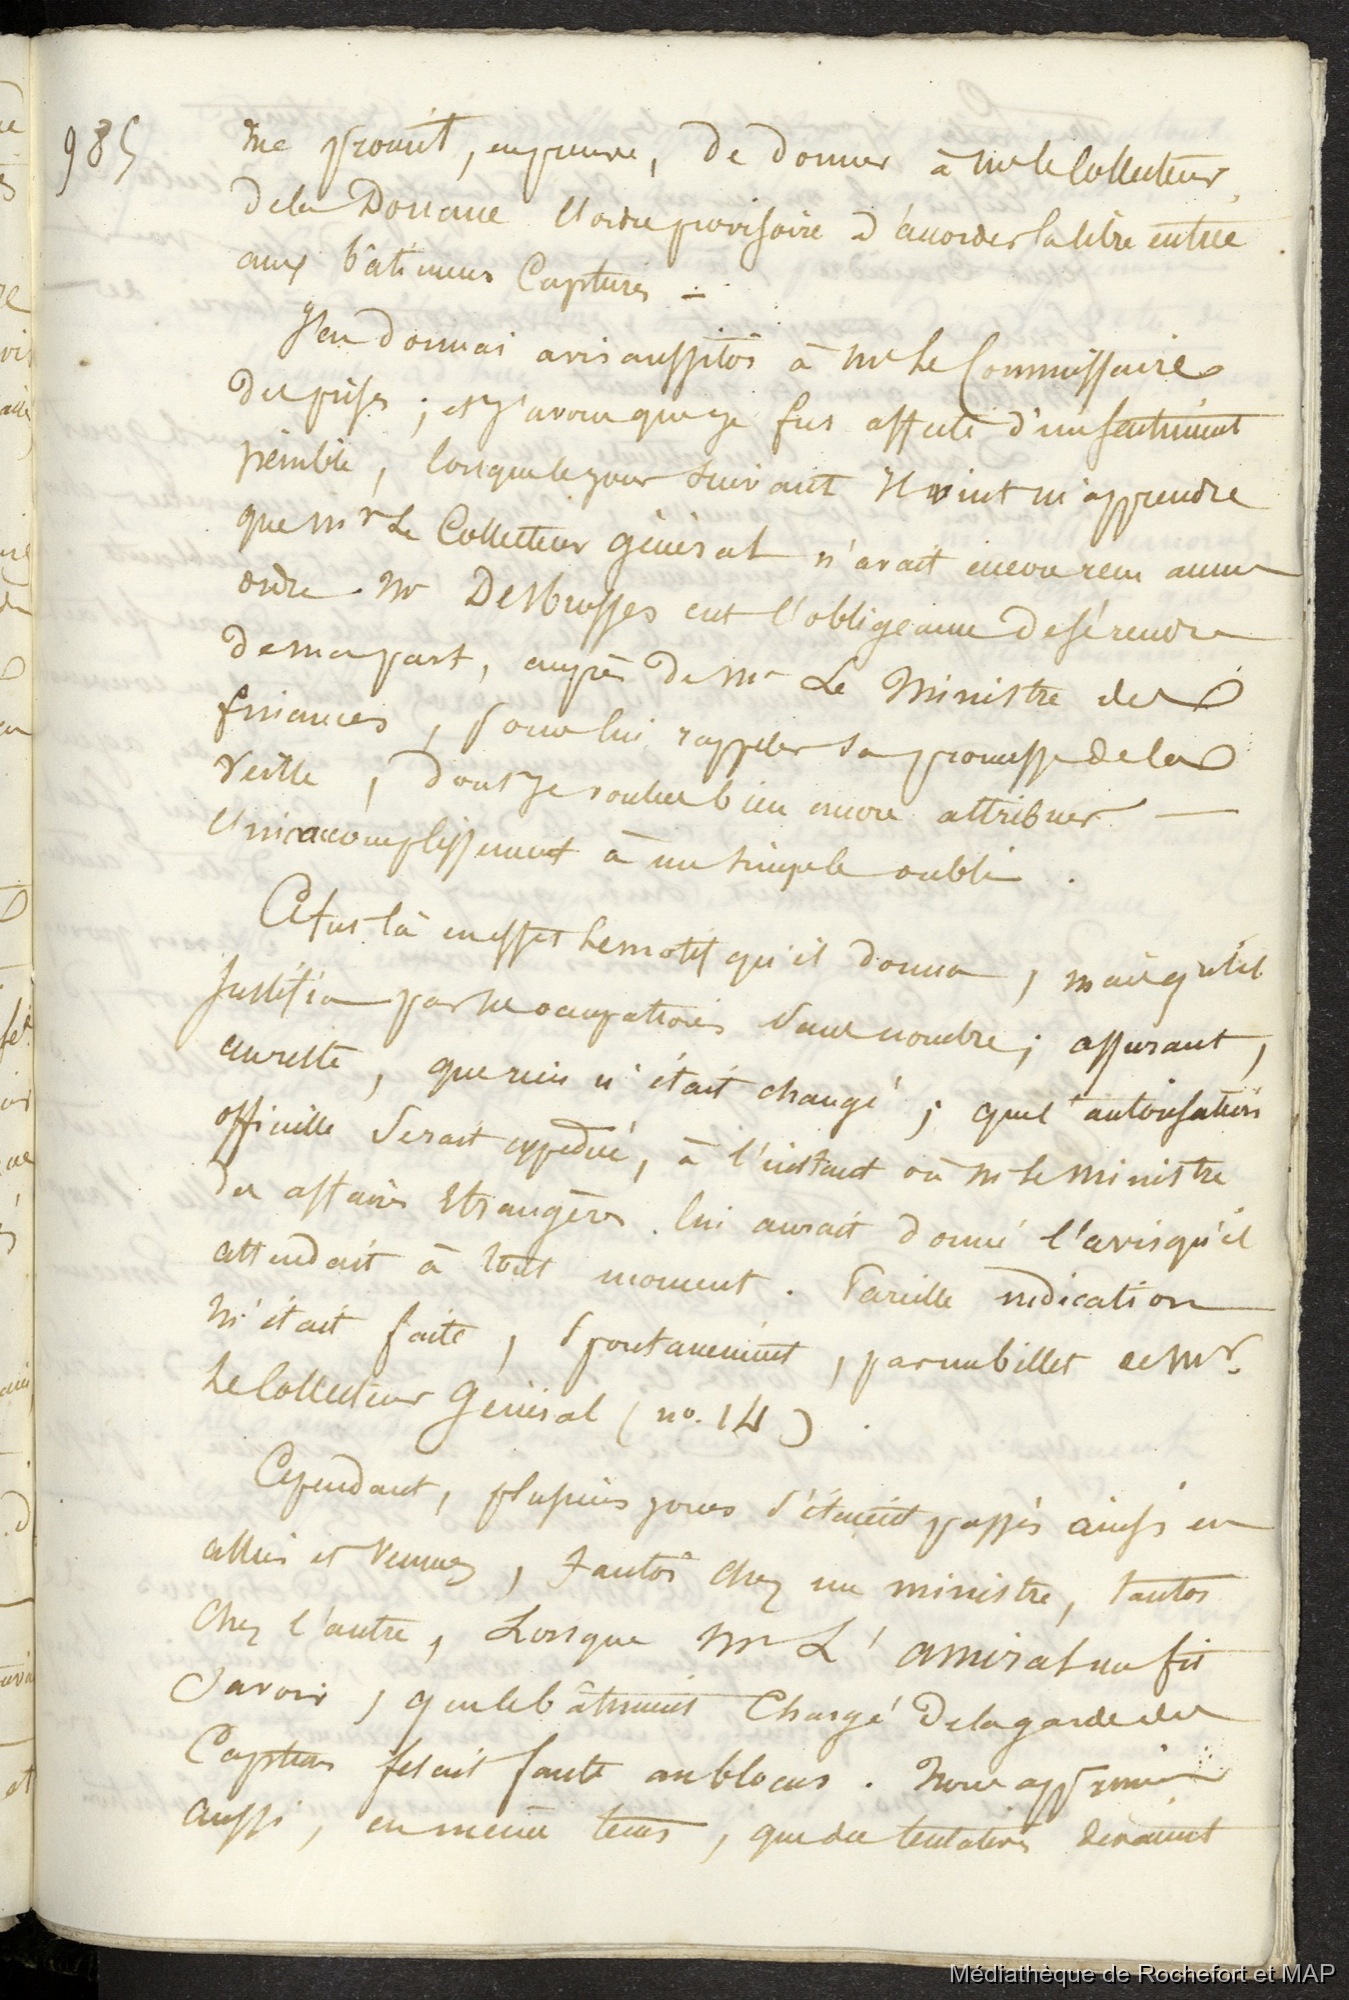 985
me promit, en preuve, de donner à Mr le Collecteur
de la Douane l'ordre provisoire d'accorder la libre entrée
aux bâtimens Capturés.
J'en donnai avis aussitôt à Mr Le Commissaire
des prises ; et j'avoue que je fus affecté d'un sentiment
pénible, lorsque le jour suivant il vint m'apprendre
que Mr Le Collecteur général n'avait encore reçu aucun
ordre. Mr Desbrosses eut l'obligeance de se rendre
de ma part, auprès de Mr Le Ministre des
finances, pour lui rappeler sa promesse de la
veille, dont je voulus bien encore attribuer
l'inaccomplissement à un simple oubli.
Ce fut là en effet le motif qu'il donna, mais qu'il
justifia par ses occupations sans nombre ; assurant,
au reste, que rien n'était changé ; que l'autorisation
officielle serait expédiée, à l'instant où Mr le Ministre
des affaires Etrangères lui aurait donné l'avis qu'il
attendait à tout moment. Pareille indication
m'était faite, spontanément, par un billet de Mr.
Le Collecteur Général (no. 14).
Cependant, plusieurs jours s'étaient passés ainsi en
allées et venues, tantôt chez un ministre, tantôt
chez l'autre, Lorsque Mr L'amiral me fit
savoir, que le bâtiment Chargé de la garde des
Captures fesait faute au blocus. Nous apprîmes
aussi, en même tems, que des tentatives devaient
Médiathèque de Rochefort et MAP